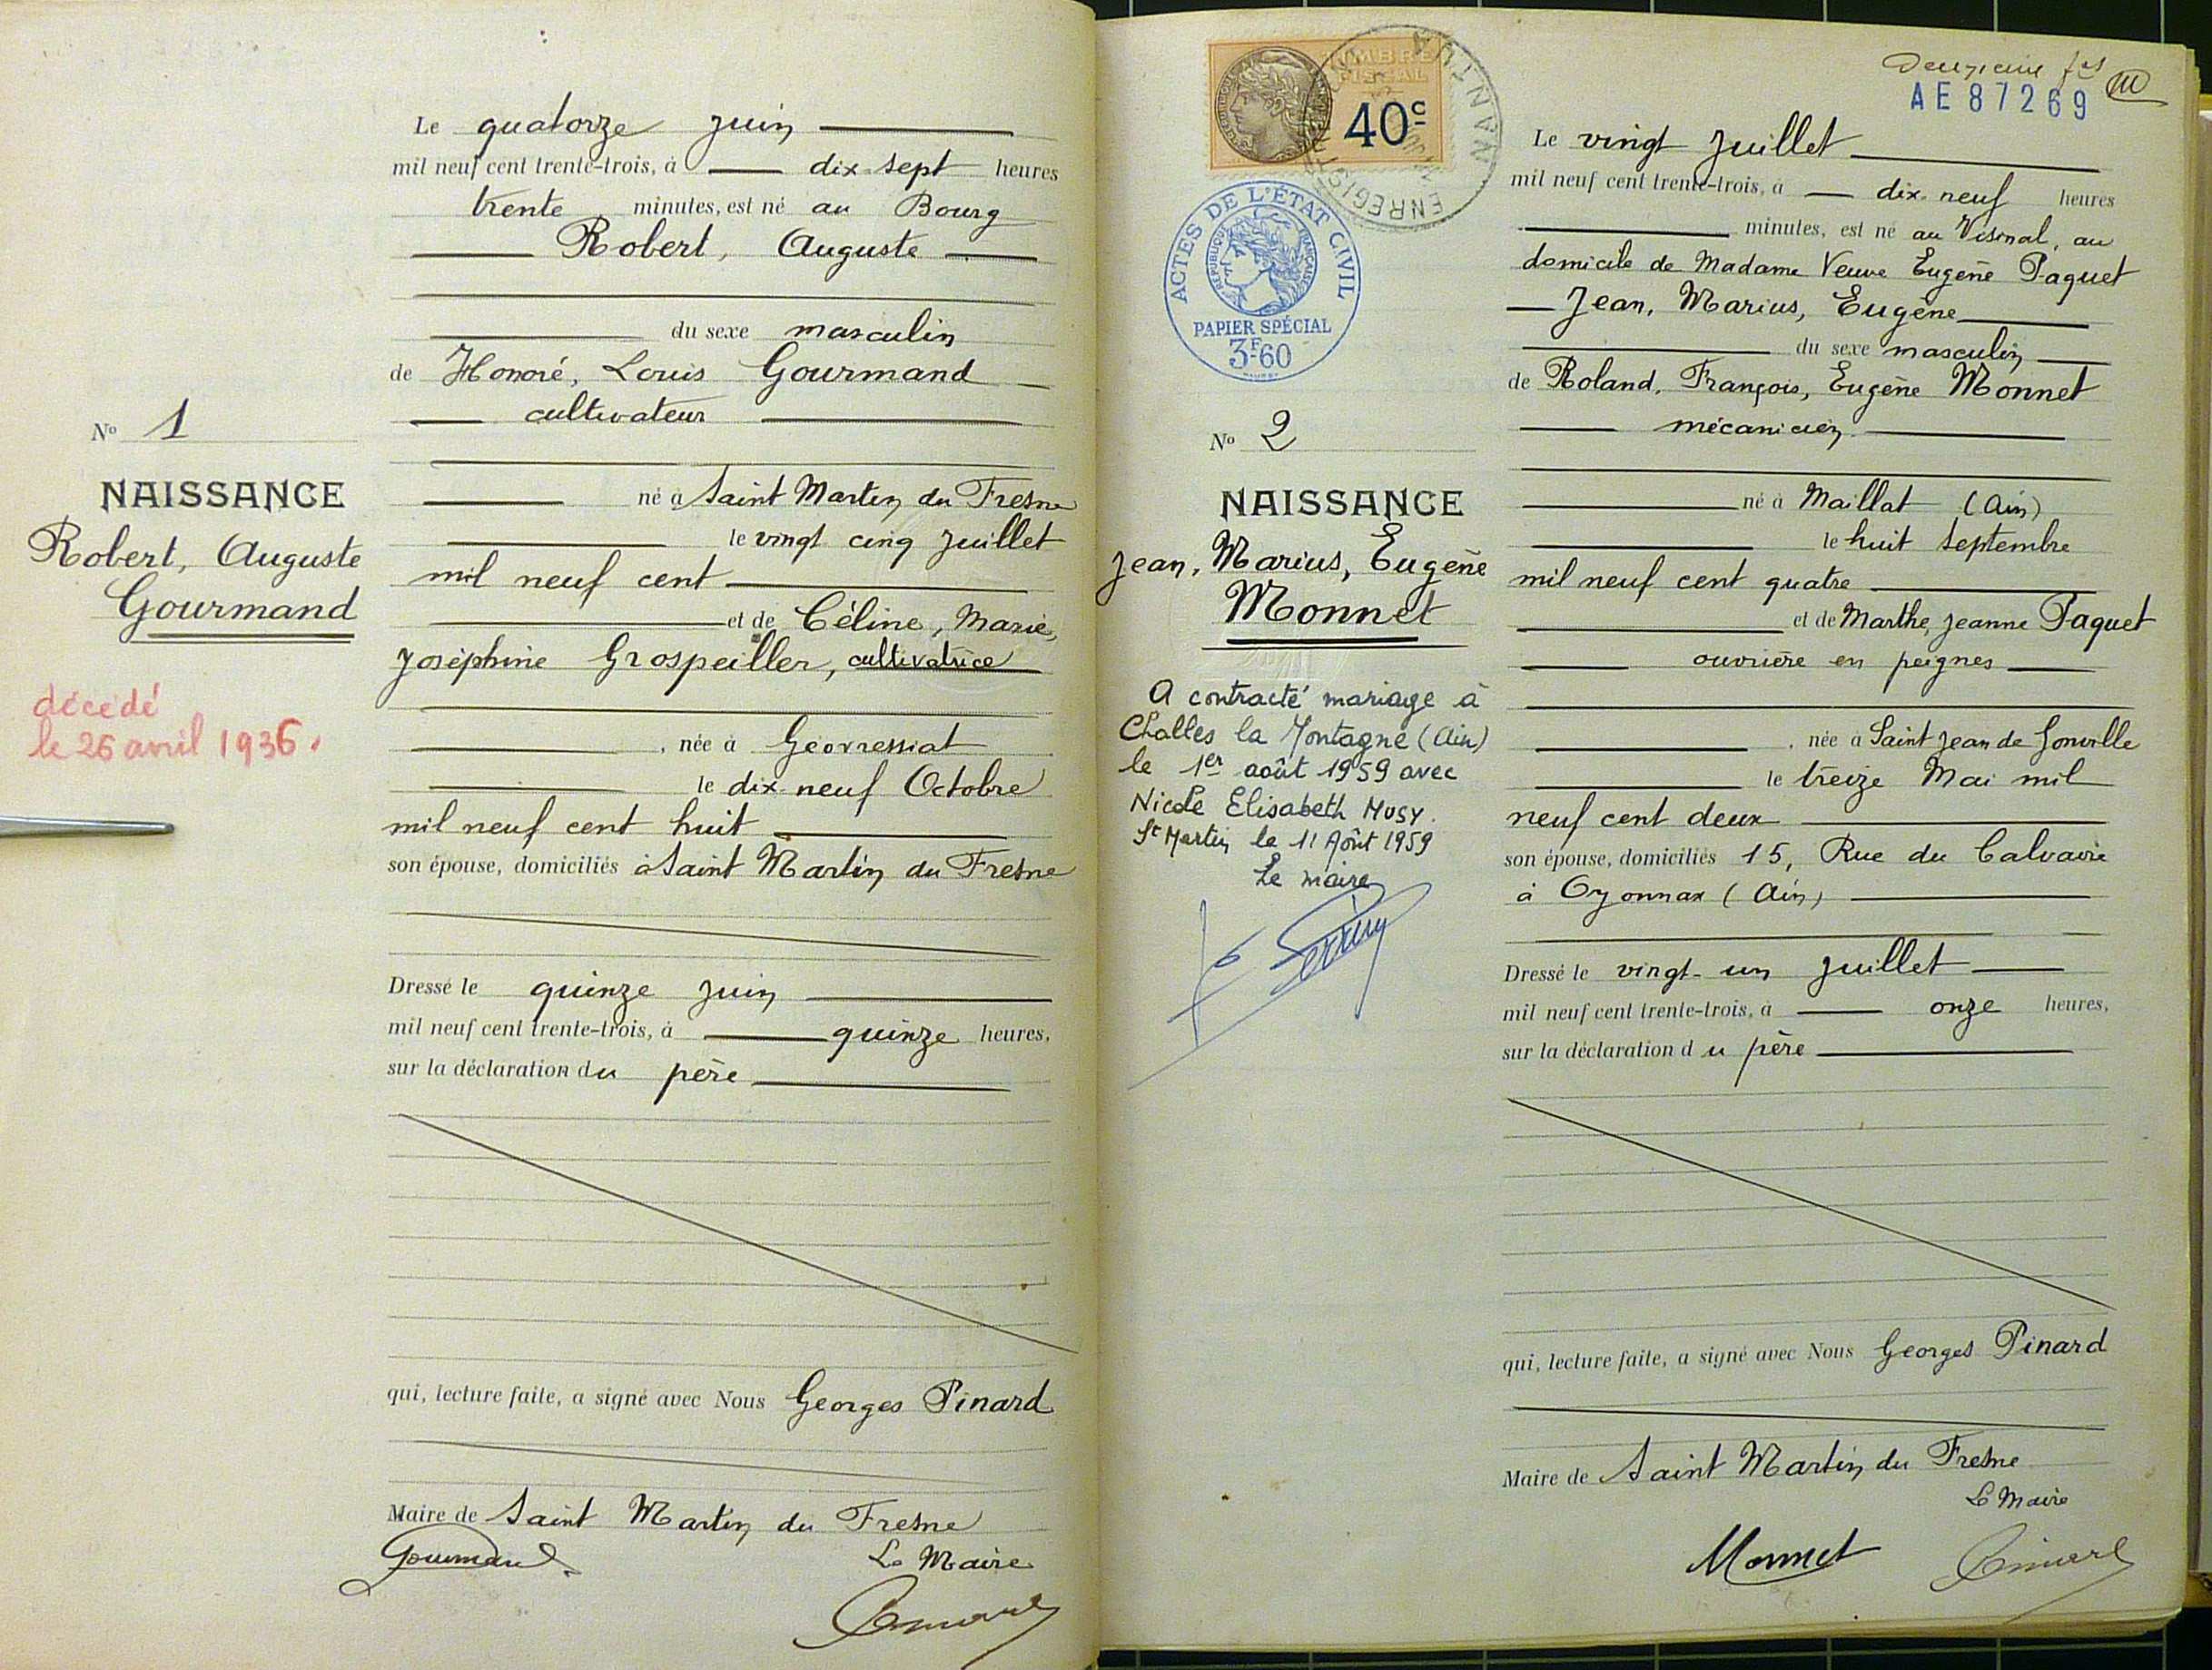 Le quatorze juin
mil neuf cent trente-trois, à dix-sept heures
trente minutes, est né au Bourg
Robert, Auguste
du sexe masculin
de Honoré, Louis Gourmand
cultivateur
né à Saint Martin du Fresne
le vingt cinq Juillet
mil neuf cent
et de Céline, Marie,
Joséphine Grospeiller, cultivatrice
, née à Géovressiat
le dix-neuf Octobre
mil neuf cent huit
son épouse, domiciliés à Saint Martin du Fresne
Dressé le quinze juin
mil neuf cent trente-trois, à quinze heures,
sur la déclaration du père
qui, lecture faite, a signé avec Nous Georges Pinard
Maire de Saint Martin du Fresne
Gourmand
Le Maire
Nº 1
NAISSANCE
Robert, Auguste
Gourmand
décédé
le 26 avril 1936.
TIMBRE
FISCAL
40c
NANTUA
ENREGISTREMENT
ACTES DE L'ÉTAT CIVIL
RÉPUBLIQUE FRANÇAISE
PAPIER SPÉCIAL
3F60
Nº 2
NAISSANCE
Jean, Marius, Eugène
Monnet
A contracté mariage à
Challes la Montagne (Ain)
le 1er août 1959 avec
Nicole Elisabeth MUSY.
St Martin le 11 Août 1959
Le maire
Deuxième
AE87269
Le vingt Juillet
mil neuf cent trente-trois, à dix-neuf heures
minutes, est né au Visinal, au
domicile de Madame Veuve Eugène Paquet
Jean, Marius, Eugène
du sexe masculin
de Roland, François, Eugène Monnet
mécanicien
né à Maillat (Ain)
le huit Septembre
mil neuf cent quatre
et de Marthe, Jeanne Paquet
ouvrière en peignes
, née à Saint Jean de Gonville
le treize Mai mil
neuf cent deux
son épouse, domiciliés 15, Rue du Calvaire
à Oyonnax (Ain)
Dressé le vingt-un Juillet
mil neuf cent trente-trois, à onze heures,
sur la déclaration du père
qui, lecture faite, a signé avec Nous Georges Pinard
Maire de Saint Martin du Fresne
Le Maire
Monnet